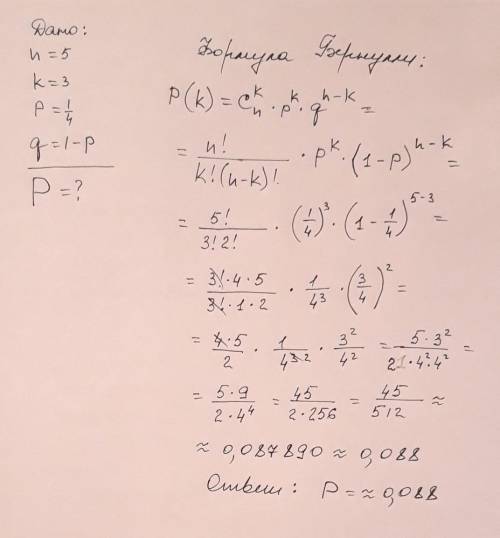 Дано:
n = 5
k = 3
P = 1/4
q = 1 - p
P = ?
Формула Бернулли:
P(k) = C_n^k · p^k · q^(n-k) =
= n!/(k!(n-k)!) · p^k · (1-p)^(n-k) =
= 5!/(3!2!) · (1/4)^3 · (1 - 1/4)^(5-3) =
= (3!·4·5)/(3!·1·2) · 1/4^3 · (3/4)^2 =
= (4·5)/2 · 1/4^(3 2) · 3^2/4^2 = (5·3^2)/(2·4^2·4^2) =
= (5·9)/(2·4^4) = 45/(2·256) = 45/512 ≈
≈ 0,087890 ≈ 0,088
Ответ: P = ≈ 0,088